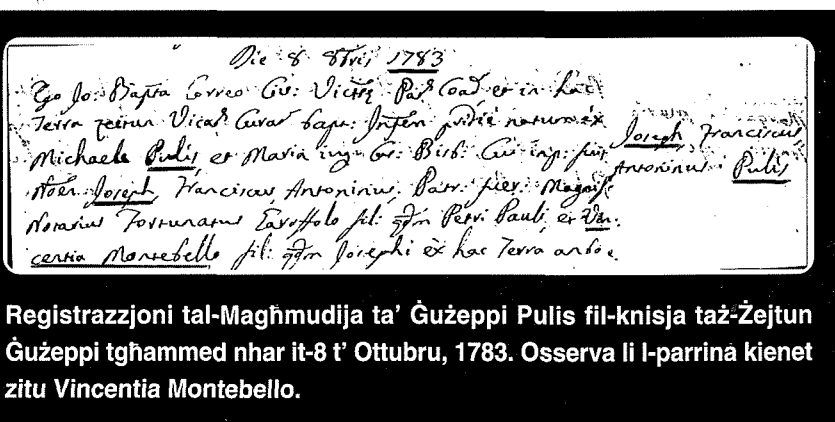 Die 8 8bris 1783
Ego Jo: Bapta Correo Civ: Victae Par Coad et in hac
Terra Zeitun Vicar Curat bapt: Infan pridie natum ex
Michaele Pulis et Maria Cui imp: fuit
Noen Joseph, Franciscus Antoninus. Patr: fuer: Magnif
Notarius Fortunatus Garoffolo fil: qdm Petri Pauli et Vin:
centia Montebello fil: qdm Josephi ex hac Terra ambo.
Joseph, Franciscus
Antoninus Pulis
Registrazzjoni tal-Magħmudija ta' Ġużeppi Pulis fil-knisja taż-Żejtun
Ġużeppi tgħammed nhar it-8 t' Ottubru, 1783. Osserva li l-parrina kienet
zitu Vincentia Montebello.